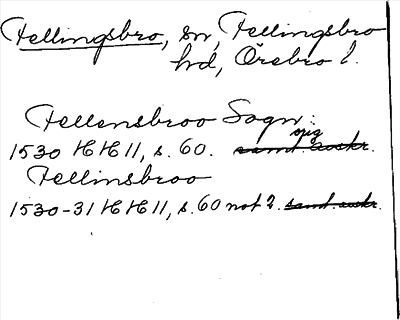 Fellingsbro, sn, Fellingsbro
hd, Örebro l.
Fellensbroo Sogn:
1530 HH 11, s. 60. samt. avskr. orig
Fellinsbroo
1530-31 HH 11, s. 60 not 2. samt. avskr.